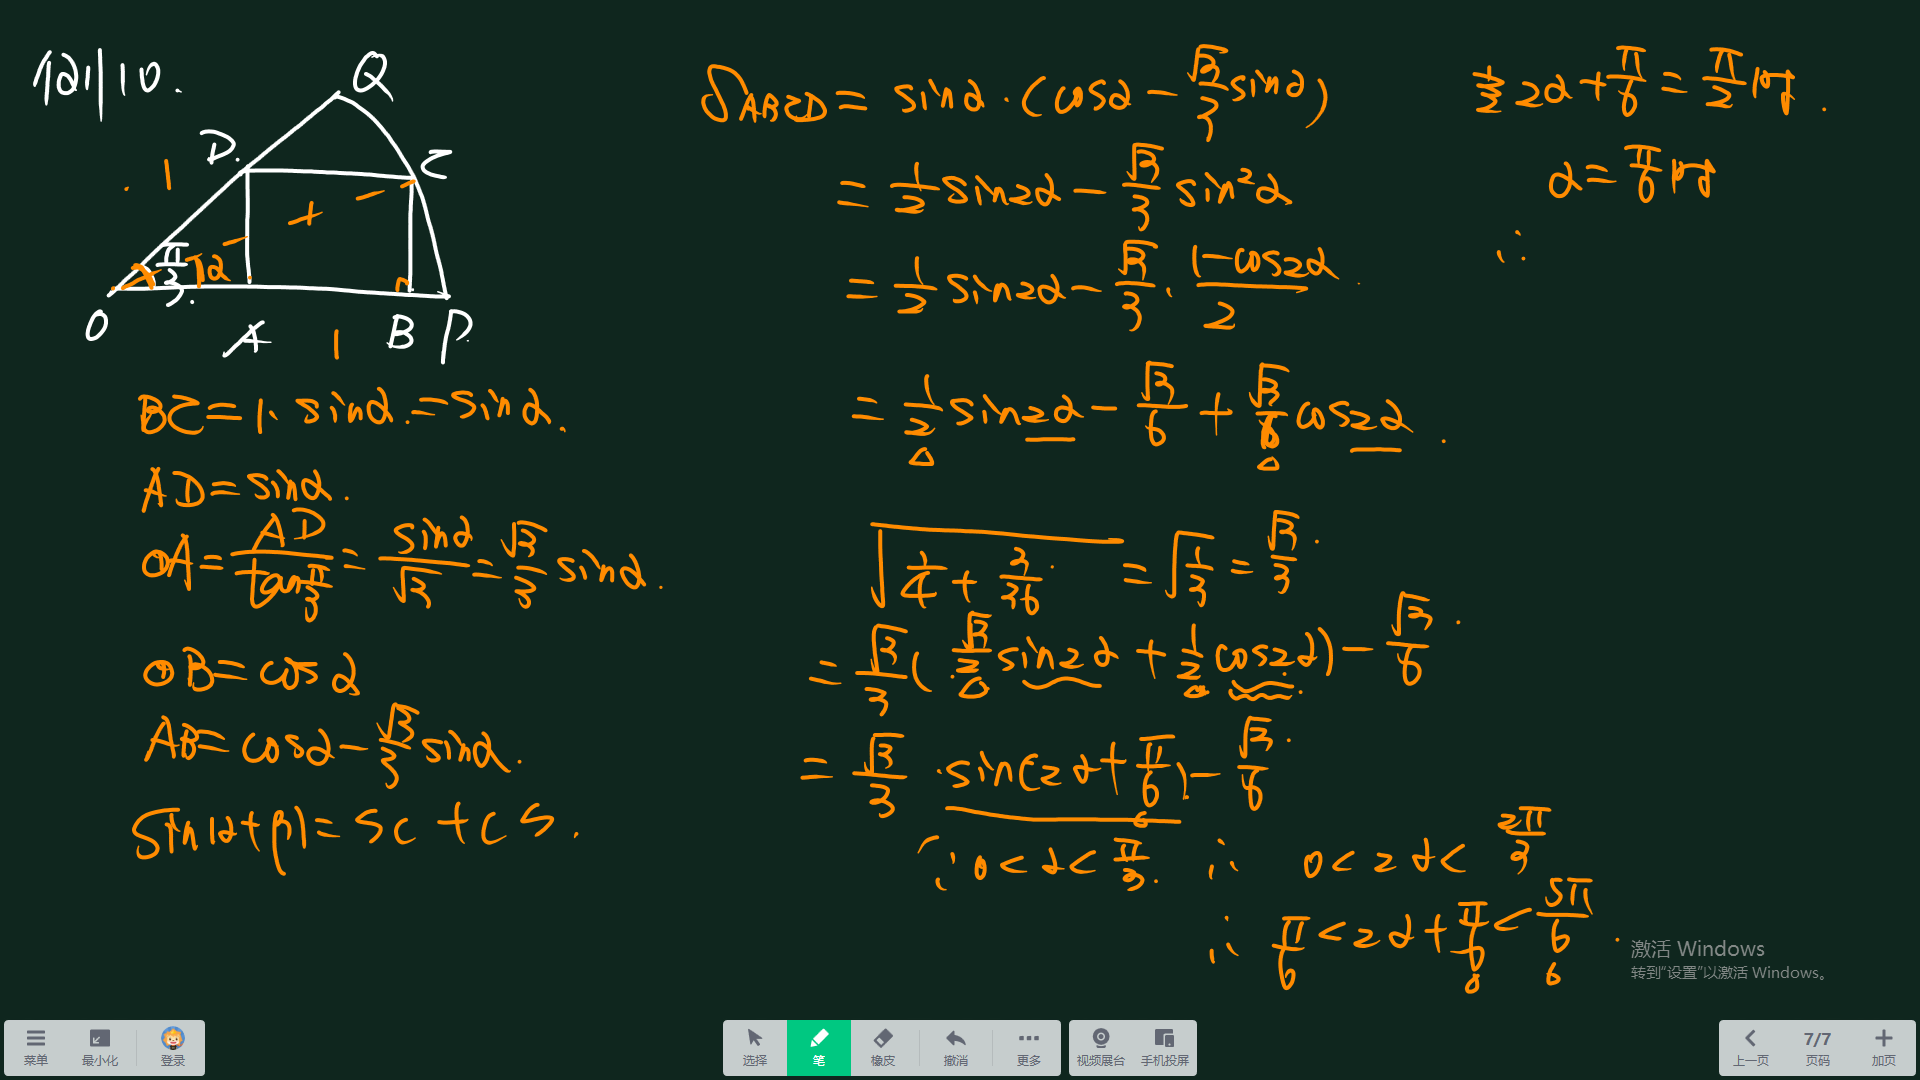 121|10.
Q
D.
C
1
+
π/3.
α
O
A
1
B
P.
BC=1·sinα.=sinα.
AD=sinα.
OA=AD/tanπ/3=sinα/√3=√3/3 sinα.
OB=cosα
AB=cosα-√3/3 sinα.
Sin(α+β)=SC+CS.
S ABCD=sinα·(cosα-√3/3 sinα)
=1/2 sin2α-√3/3 sin²α
=1/2 sin2α-√3/3·(1-cos2α)/2
=1/2 sin2α-√3/6+√3/6 cos2α.
√(1/4+3/36)=√(1/3)=√3/3.
=√3/3(√3/2 sin2α+1/2 cos2α)-√3/6.
=√3/3·sin(2α+π/6)-√3/6.
∵0<α<π/3. ∴ 0<2α<2π/3
∴ π/6<2α+π/6<5π/6.
2α+π/6=π/2时.
α=π/6时
∴
激活 Windows
转到“设置”以激活 Windows。
菜单
最小化
登录
选择
笔
橡皮
撤消
更多
视频展台
手机投屏
上一页
7/7
页码
加页